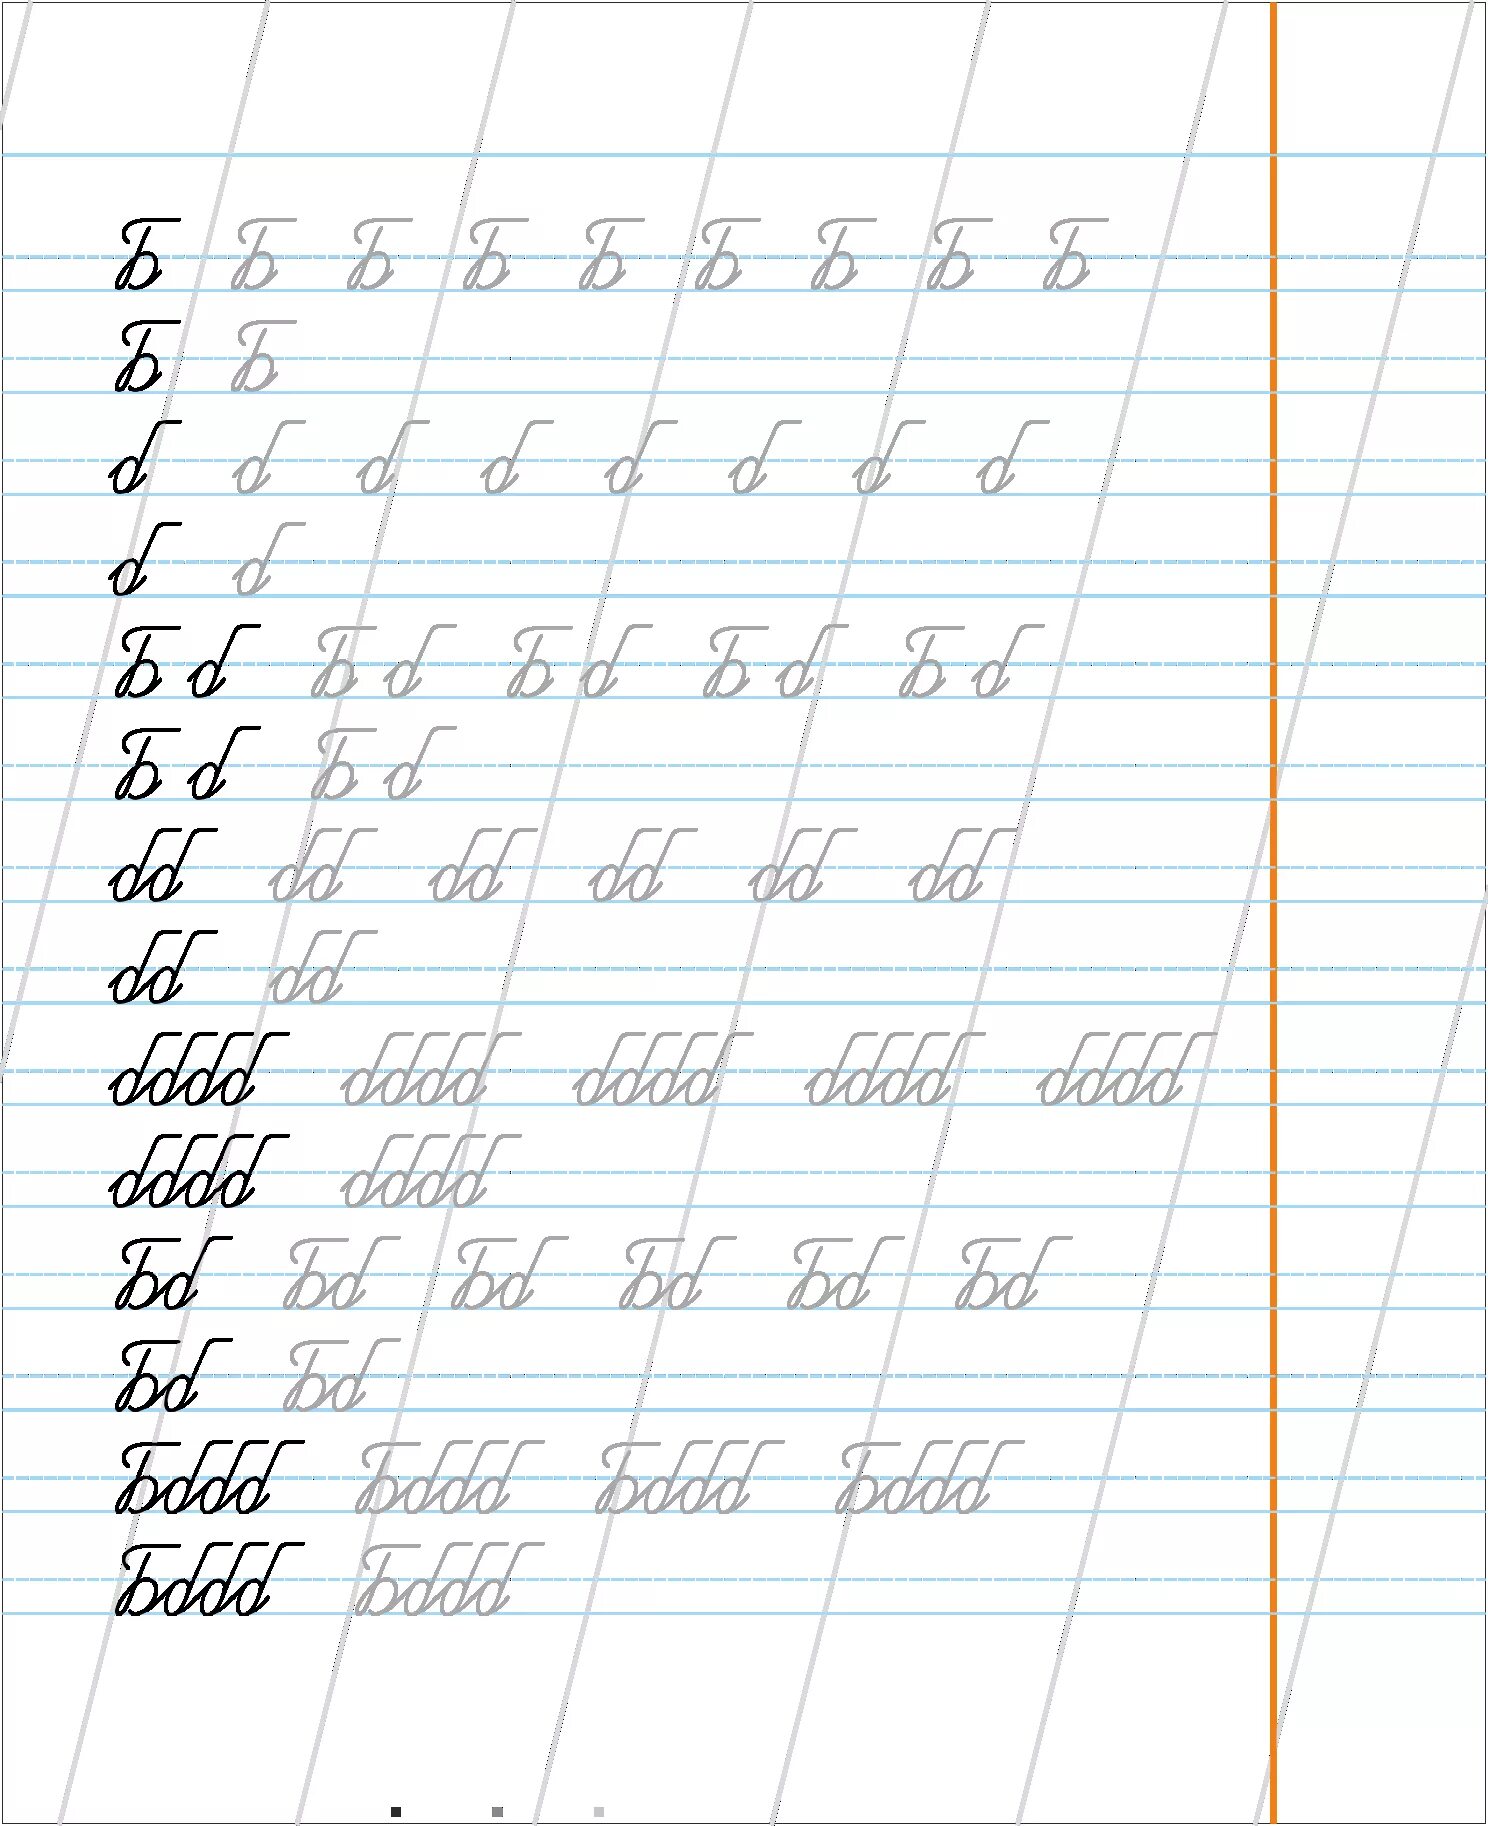 Б Б Б Б Б Б Б Б Б
Б Б
б б б б б б б б
б б
Б б Б б Б б Б б Б б
Б б Б б
бб бб бб бб бб бб
бб бб
бббб бббб бббб бббб бббб
бббб бббб
Бб Бб Бб Бб Бб Бб
Бб Бб
Бббб Бббб Бббб Бббб
Бббб Бббб